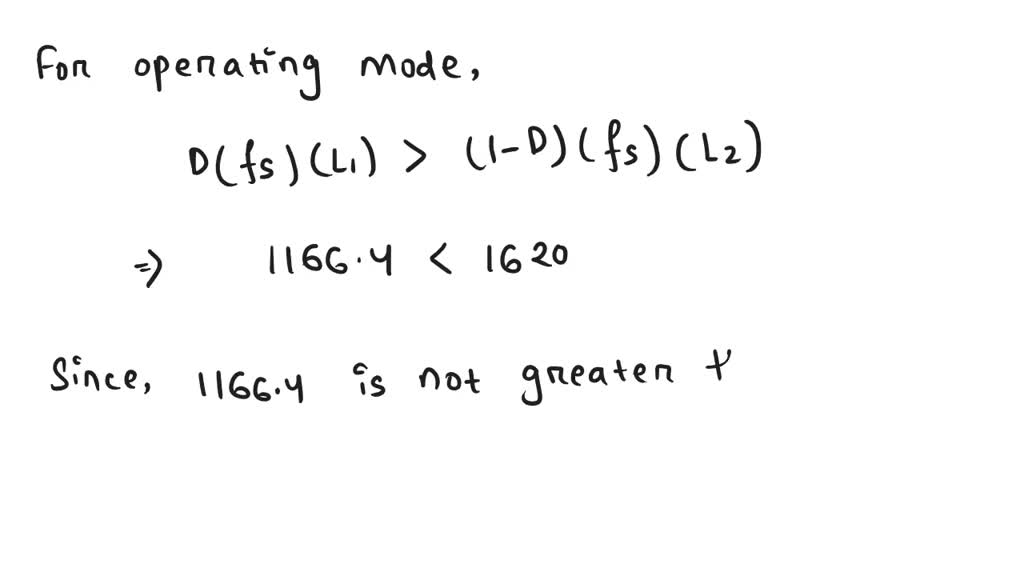 For operating mode,
D(fs)(L₁) > (1-D)(fs)(L₂)
⇒ 1166.4 < 1620
Since, 1166.4 is not greater t